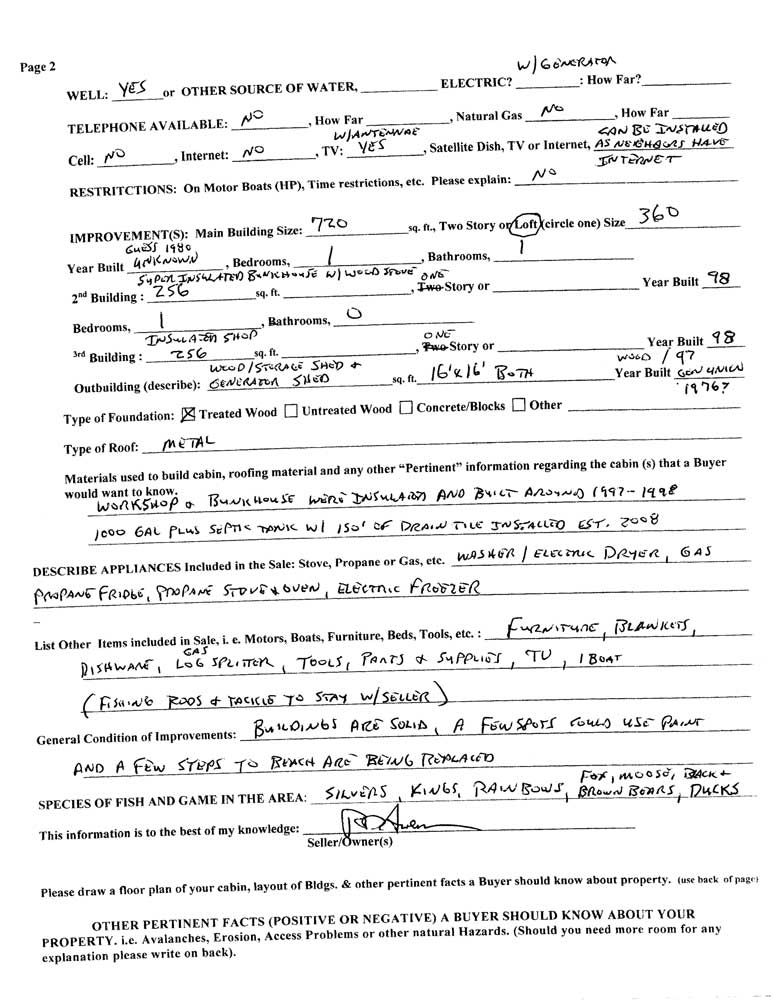 Page 2
W/GENERATOR
WELL: YES or OTHER SOURCE OF WATER, ELECTRIC? : How Far?
TELEPHONE AVAILABLE: NO , How Far , Natural Gas NO , How Far
W/ANTENNAE CAN BE INSTALLED
Cell: NO , Internet: NO , TV: YES , Satellite Dish, TV or Internet, AS NEIGHBORS HAVE
INTERNET
RESTRITCTIONS: On Motor Boats (HP), Time restrictions, etc. Please explain: NO
IMPROVEMENT(S): Main Building Size: 720 sq. ft., Two Story or Loft (circle one) Size 360
GUESS 1980
Year Built UNKNOWN , Bedrooms, 1 , Bathrooms, 1
SUPER INSULATED BUNKHOUSE W/ WOOD STOVE ONE
2nd Building : 256 sq. ft. , Two Story or Year Built 98
Bedrooms, 1 , Bathrooms, O
INSULATED SHOP ONE
3rd Building : 256 sq. ft. , Two Story or Year Built 98
WOOD/STORAGE SHED + WOOD / 97
Outbuilding (describe): GENERATOR SHED sq. ft. 16'x16' BOTH Year Built GEN UNKN
1976?
Type of Foundation: ☒ Treated Wood ☐ Untreated Wood ☐ Concrete/Blocks ☐ Other
Type of Roof: METAL
Materials used to build cabin, roofing material and any other “Pertinent” information regarding the cabin (s) that a Buyer
would want to know.
WORKSHOP & BUNKHOUSE WERE INSULATED AND BUILT AROUND 1997-1998
1000 GAL PLUS SEPTIC TANK W/ 150' OF DRAIN TILE INSTALLED EST. 2008
DESCRIBE APPLIANCES Included in the Sale: Stove, Propane or Gas, etc. WASHER / ELECTRIC DRYER, GAS
PROPANE FRIDGE, PROPANE STOVE & OVEN, ELECTRIC FREEZER
List Other Items included in Sale, i. e. Motors, Boats, Furniture, Beds, Tools, etc. : FURNITURE, BLANKETS,
GAS
DISHWARE, LOG SPLITTER, TOOLS, PARTS & SUPPLIES, TV, 1 BOAT
(FISHING RODS & TACKLE TO STAY W/SELLER)
General Condition of Improvements: BUILDINGS ARE SOLID, A FEW SPOTS COULD USE PAINT
AND A FEW STEPS TO BEACH ARE BEING REPLACED
FOX, MOOSE, BLACK +
SPECIES OF FISH AND GAME IN THE AREA: SILVERS, KINGS, RAINBOWS, BROWN BEARS, DUCKS
This information is to the best of my knowledge:
Seller/Owner(s)
Please draw a floor plan of your cabin, layout of Bldgs. & other pertinent facts a Buyer should know about property. (use back of page)
OTHER PERTINENT FACTS (POSITIVE OR NEGATIVE) A BUYER SHOULD KNOW ABOUT YOUR
PROPERTY. i.e. Avalanches, Erosion, Access Problems or other natural Hazards. (Should you need more room for any
explanation please write on back).